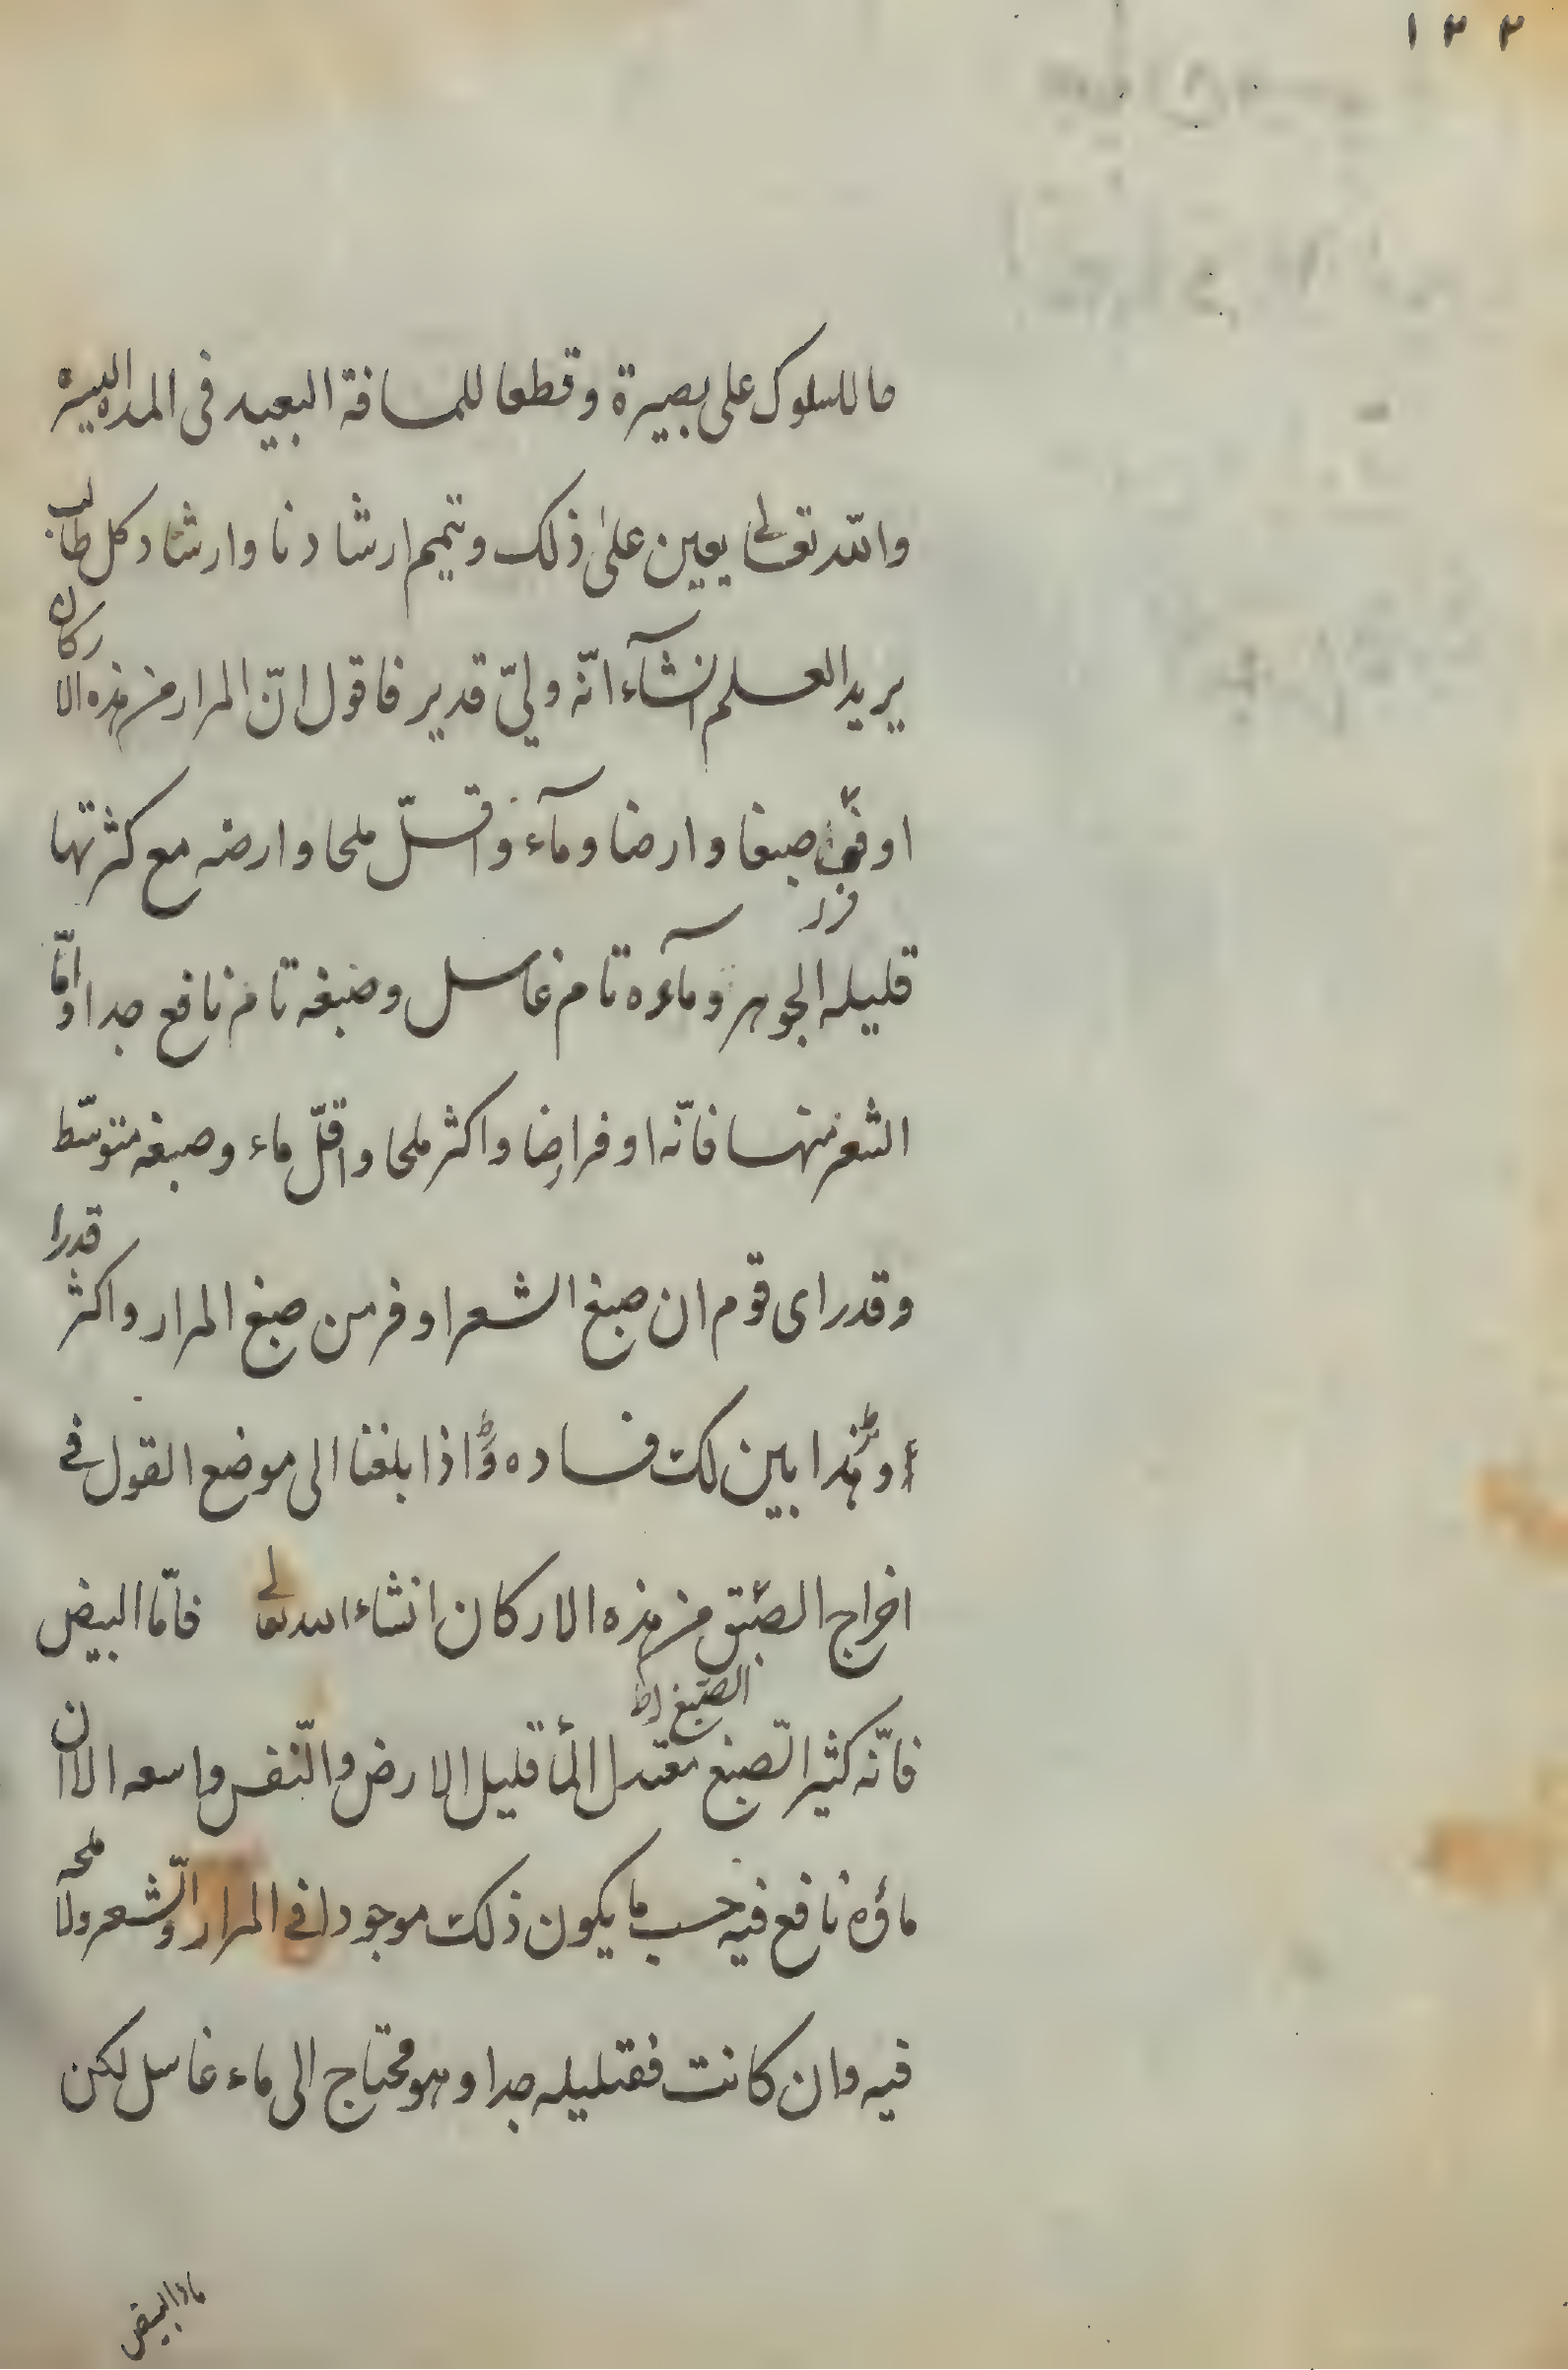 ١٣٢
ما للسلوك على بصيرة وقطعا للمسافة البعيد فى المده اليسيرة
والله تعالى يعين على ذلك ويتميم ارشادنا وارشاد كل طالب
يريد العلم انشآء انّه وليّ قدير فاقول انّ المرار من هذه الاركان
اوفى صبغا وارضا ومآء واقلّ ملحا وارضه مع كثرتها
قليله الجوهر ومآءه تام غاسل وصبغه تام نافع جدا وامّا
الشعر منها فانّه اوفر ارضا واكثر ملحا واقلّ ماء وصبغه متوسّط
وقد راى قوم ان صبغ الشعر اوفر من صبغ المرار واكثر قدرا
وهذا بين لك فساده واذا بلغنا الى موضع القول فى
اخراج الصبق من هذه الاركان انشاء الله تعالى فامّا البيض
الصبغ ظ
فانّه كثير الصّبغ معتدل المأ قليل الارض والنّفس واسعه الا ان
ماؤه نافع فيه حسب ما يكون ذلك موجودا فى المرار والشّعر ولا ملحه
فيه وان كانت فقليله جدا وهو محتاج الى ماء غاسل لكن
ماء البيض